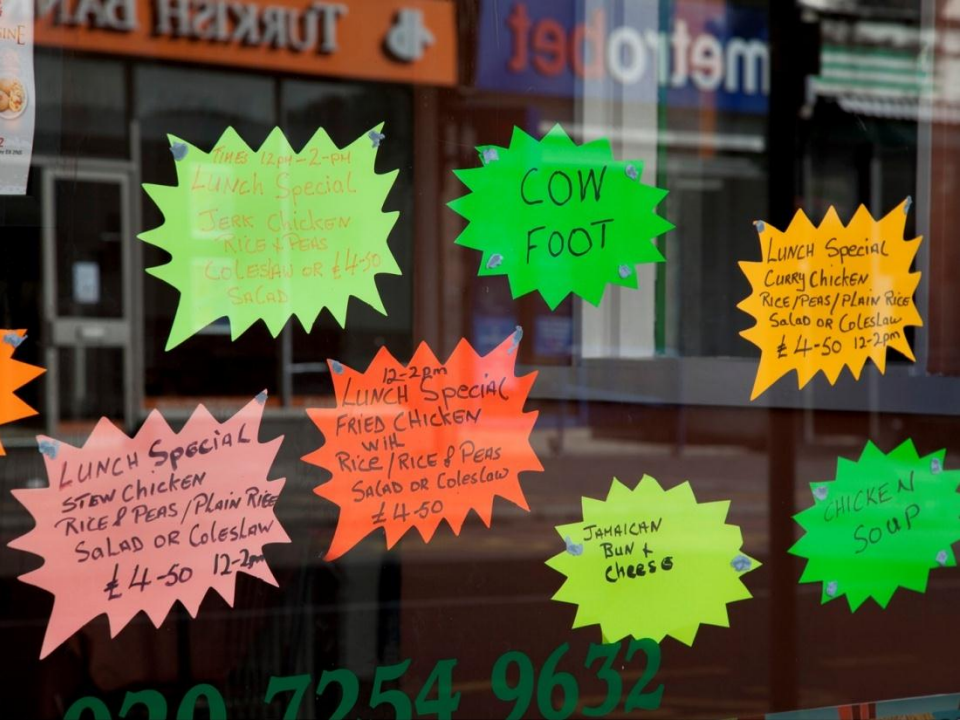 TURKISH BAN
metrobet
TIMES 12PM-2-PM
LUNCH Special
JERK CHICKEN
RICE & PEAS
COLESLAW OR £4-50
SALAD
COW
FOOT
LUNCH Special
CURRY CHICKEN
RICE/PEAS/PLAIN RICE
SALAD OR COLESLAW
£4-50 12-2pm
12-2pm
LUNCH Special
FRIED CHICKEN
WITH
RICE/RICE & PEAS
SALAD OR COLESLAW
£4-50
LUNCH Special
STEW CHICKEN
RICE & PEAS/PLAIN RICE
SALAD OR COLESLAW
£4-50 12-2pm
JAMAICAN
BUN +
CHEESE
CHICKEN
SOUP
020 7254 9632